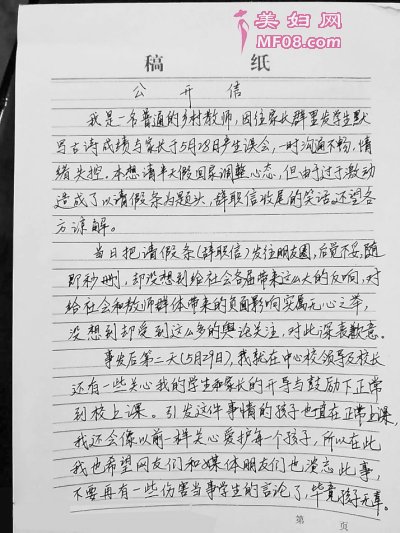 美妇网
MF08.com
稿 纸
公开信
我是一名普通的乡村教师，因往家长群里发学生默
写古诗成绩与家长于5月28日产生误会，一时沟通不畅，情
绪失控。本想请半天假回家调整心态，但由于过于激动
造成了以请假条为题头，辞职信收尾的笑话。还望各
方谅解。
当日把请假条（辞职信）发往朋友圈，后觉不妥，随
即秒删，却没想到给社会各届带来这么大的反响，对
给社会和教师群体带来的负面影响实属无心之举，
没想到却受到这么多的舆论关注，对此深表歉意。
事发后第二天（5月29日），我就在中心校领导及校长
还有一些关心我的学生和家长的开导与鼓励下正常
到校上课。引发这件事情的孩子也一直在正常上课，
我还会像以前一样关心爱护每一个孩子，所以在此
我也希望网友们和媒体朋友们也淡忘此事，
不要再有一些伤害当事学生的言论了，毕竟孩子无辜。
第 页